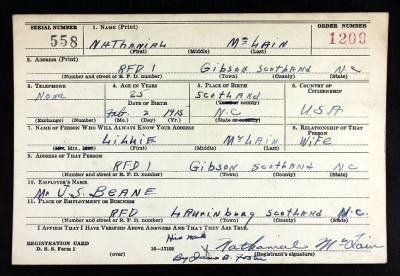 SERIAL NUMBER 1. NAME (Print) ORDER NUMBER
558 NATHANIAL McLAIN 1209
(First) (Middle) (Last)
2. ADDRESS (Print)
RFD 1 GIBSON SCOTLAND N.C
(Number and street or R. F. D. number) (Town) (County) (State)
3. TELEPHONE 4. AGE IN YEARS 5. PLACE OF BIRTH 6. COUNTRY OF CITIZENSHIP
None 25 Scotland
DATE OF BIRTH (Town or county)
Feb 2 1915 N.C USA
(Exchange) (Number) (Mo.) (Day) (Yr.) (State or country)
7. NAME OF PERSON WHO WILL ALWAYS KNOW YOUR ADDRESS 8. RELATIONSHIP OF THAT PERSON
LILLIE McLAIN WIFE
(Mr., Mrs., Miss) (First) (Middle) (Last)
9. ADDRESS OF THAT PERSON
RFD 1 GIBSON SCOTLAND NC
(Number and street or R. F. D. number) (Town) (County) (State)
10. EMPLOYER'S NAME
Mr J.S. BEANE
11. PLACE OF EMPLOYMENT OR BUSINESS
RFD LAURINBURG SCOTLAND N.C.
(Number and street or R. F. D. number) (Town) (County) (State)
I AFFIRM THAT I HAVE VERIFIED ABOVE ANSWERS AND THAT THEY ARE TRUE.
His Mark
REGISTRATION CARD
D. S. S. Form 1 16—17105 X Nathanial McLain
By (Registrant's signature)